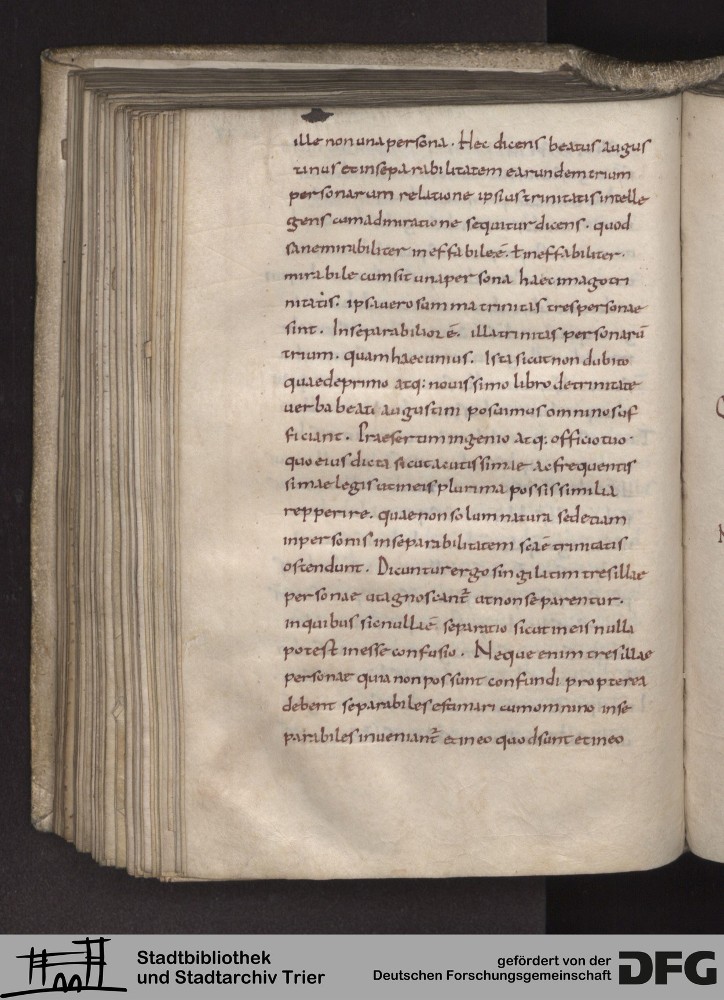 ille non una persona. Hec dicens beatus augus
tinus et inseparabilitatem earundem trium
personarum relatione ipsius trinitatis intelle
gens cum admiratione sequitur dicens. quod
sane mirabiliter ineffabile ē. ł ineffabiliter.
mirabile cum sit una persona haec imago tri
nitatis. ipsa uero summa trinitas tres personae
sint. Inseparabilior ē. illa trinitas personarū
trium. quam haec unius. Ista sicut non dubito
quae de primo atq: nouissimo libro de trinitate
uerba beati augustini posuimus omnino suf
ficiunt. Praesertim ingenio atq. officio tuo.
quo eius dicta sicut acutissimae ac frequentis
simae legis ut in eis plurima possis similia
repperire. quae non solum natura sed etiam
in personis inseparabilitatem scāe trinitatis
ostendunt. Dicuntur ergo singilatim tres illae
personae ut agnoscant̄ ut non separentur.
in quibus sic nulla ē separatio sicut in eis nulla
potest inesse confusio. Neque enim tres illae
personae quia non possunt confundi propterea
debent separabiles estimari cum omnino inse
parabiles inueniant̄ et in eo quod sunt et in eo
Stadtbibliothek
und Stadtarchiv Trier
gefördert von der
Deutschen Forschungsgemeinschaft
DFG